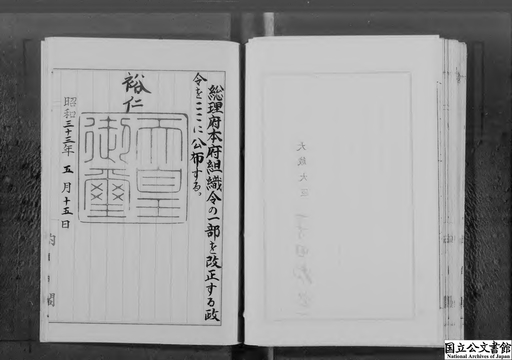 総理府本府組織令の一部を改正する政
令をここに公布する。
裕仁
天皇
御璽
昭和三十三年五月十五日
内閣
国立公文書館
National Archives of Japan